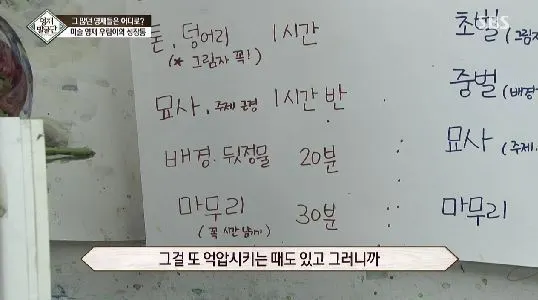 영재 발굴단
그 많던 영재들은 어디로?
미술 영재 우림이의 성장통
SBS
톤, 덩어리 1시간
(* 그림자 꼭!)
묘사, 주제 근경 1시간 반
배경. 뒷정물 20분
마무리 30분
초벌 (그림자
중벌 (배경
묘사 (주제.
마무리
그걸 또 억압시키는 때도 있고 그러니까